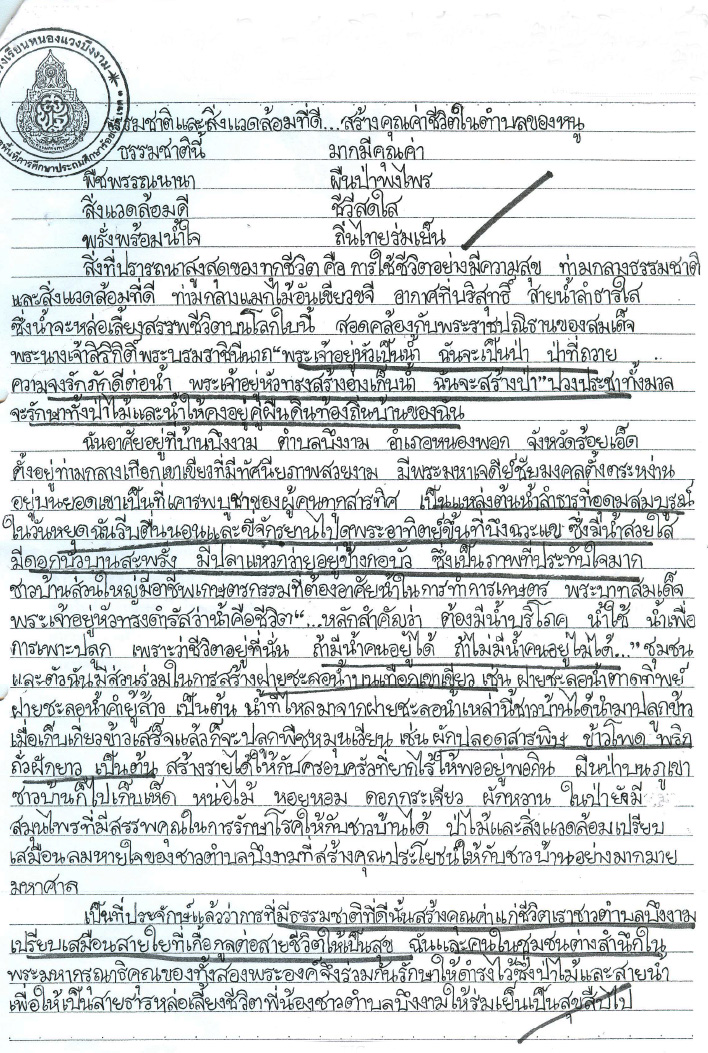 โรงเรียนหนองแวงบึงงาม
ธรรมชาติและสิ่งแวดล้อมที่ดี...สร้างคุณค่าชีวิตในตำบลของหนู
ธรรมชาตินี้ มากมีคุณค่า
พืชพรรณนานา ผืนป่าพงไพร
สิ่งแวดล้อมดี ชีวีสดใส
พรั่งพร้อมน้ำใจ ถิ่นไทยร่มเย็น
สิ่งที่ปรารถนาสูงสุดของทุกชีวิต คือ การใช้ชีวิตอย่างมีความสุข ท่ามกลางธรรมชาติ
และสิ่งแวดล้อมที่ดี ท่ามกลางแมกไม้อันเขียวขจี อากาศที่บริสุทธิ์ สายน้ำลำธารใส
ซึ่งน้ำจะหล่อเลี้ยงสรรพชีวิตบนโลกใบนี้ สอดคล้องกับพระราชปณิธานของสมเด็จ
พระนางเจ้าสิริกิติ์พระบรมราชินีนาถ"พระเจ้าอยู่หัวเป็นน้ำ ฉันจะเป็นป่า ป่าที่ถวาย
ความจงรักภักดีต่อน้ำ พระเจ้าอยู่หัวทรงสร้างอ่างเก็บน้ำ ฉันจะสร้างป่า"ปวงประชาทั้งมวล
จะรักษาทั้งป่าไม้และน้ำให้คงอยู่คู่ผืนดินท้องถิ่นบ้านของฉัน
ฉันอาศัยอยู่ที่บ้านบึงงาม ตำบลบึงงาม อำเภอหนองพอก จังหวัดร้อยเอ็ด
ตั้งอยู่ท่ามกลางเทือกเขาเขียวที่มีทัศนียภาพสวยงาม มีพระมหาเจดีย์ชัยมงคลตั้งตระหง่าน
อยู่บนยอดเขาเป็นที่เคารพบูชาของผู้คนทุกสารทิศ เป็นแหล่งต้นน้ำลำธารที่อุดมสมบูรณ์
ในวันหยุดฉันรีบตื่นนอนและขี่จักรยานไปดูพระอาทิตย์ขึ้นที่บึงฉวะแข ซึ่งมีน้ำสวยใส
มีดอกบัวบานสะพรั่ง มีปลาแหวกว่ายอยู่ข้างกอบัว ซึ่งเป็นภาพที่ประทับใจมาก
ชาวบ้านส่วนใหญ่มีอาชีพเกษตรกรรมที่ต้องอาศัยน้ำในการทำการเกษตร พระบาทสมเด็จ
พระเจ้าอยู่หัวทรงดำรัสว่าน้ำคือชีวิต"...หลักสำคัญว่า ต้องมีน้ำบริโภค น้ำใช้ น้ำเพื่อ
การเพาะปลูก เพราะว่าชีวิตอยู่ที่นั่น ถ้ามีน้ำคนอยู่ได้ ถ้าไม่มีน้ำคนอยู่ไม่ได้..."ชุมชน
และตัวฉันมีส่วนร่วมในการสร้างฝายชะลอน้ำบนเทือกเขาเขียว เช่น ฝายชะลอน้ำตาดทิพย์
ฝายชะลอน้ำคำยู้ส้าว เป็นต้น น้ำที่ไหลมาจากฝายชะลอน้ำเหล่านี้ชาวบ้านได้นำมาปลูกข้าว
เมื่อเก็บเกี่ยวข้าวเสร็จแล้วก็จะปลูกพืชหมุนเวียน เช่น ผักปลอดสารพิษ ข้าวโพด พริก
ถั่วฝักยาว เป็นต้น สร้างรายได้ให้กับครอบครัวที่ยากไร้ให้พออยู่พอกิน ผืนป่าบนภูเขา
ชาวบ้านก็ไปเก็บเห็ด หน่อไม้ หอยหอม ดอกกระเจียว ผักหวาน ในป่ายังมี
สมุนไพรที่มีสรรพคุณในการรักษาโรคให้กับชาวบ้านได้ ป่าไม้และสิ่งแวดล้อมเปรียบ
เสมือนลมหายใจของชาวตำบลบึงงามที่สร้างคุณประโยชน์ให้กับชาวบ้านอย่างมากมาย
มหาศาล
เป็นที่ประจักษ์แล้วว่าการที่มีธรรมชาติที่ดีนั้นสร้างคุณค่าแก่ชีวิตเราชาวตำบลบึงงาม
เปรียบเสมือนสายใยที่เกื้อกูลต่อสายชีวิตให้เป็นสุข ฉันและคนในชุมชนต่างสำนึกใน
พระมหากรุณาธิคุณของทั้งสองพระองค์จึงร่วมกันรักษาให้ดำรงไว้ซึ่งป่าไม้และสายน้ำ
เพื่อให้เป็นสายธารหล่อเลี้ยงชีวิตพี่น้องชาวตำบลบึงงามให้ร่มเย็นเป็นสุขสืบไป